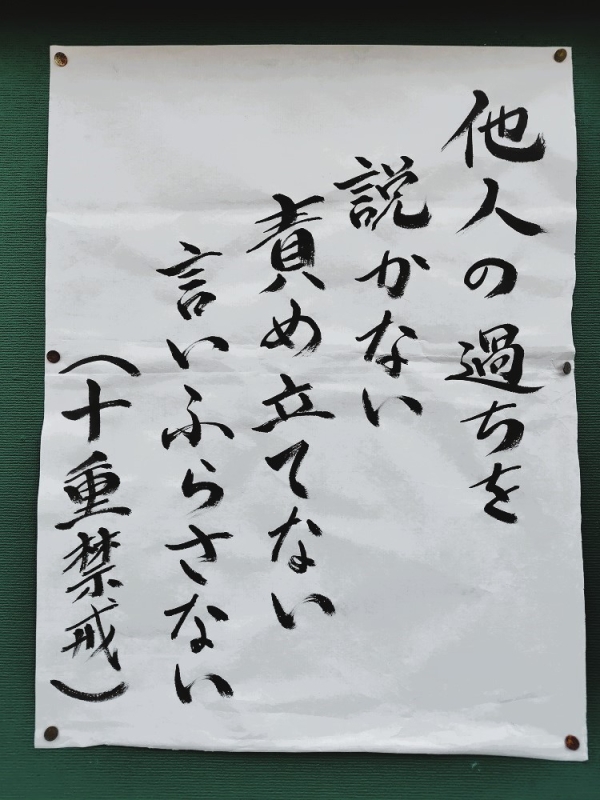 他人の過ちを
説かない
責め立てない
言いふらさない
（十重禁戒）